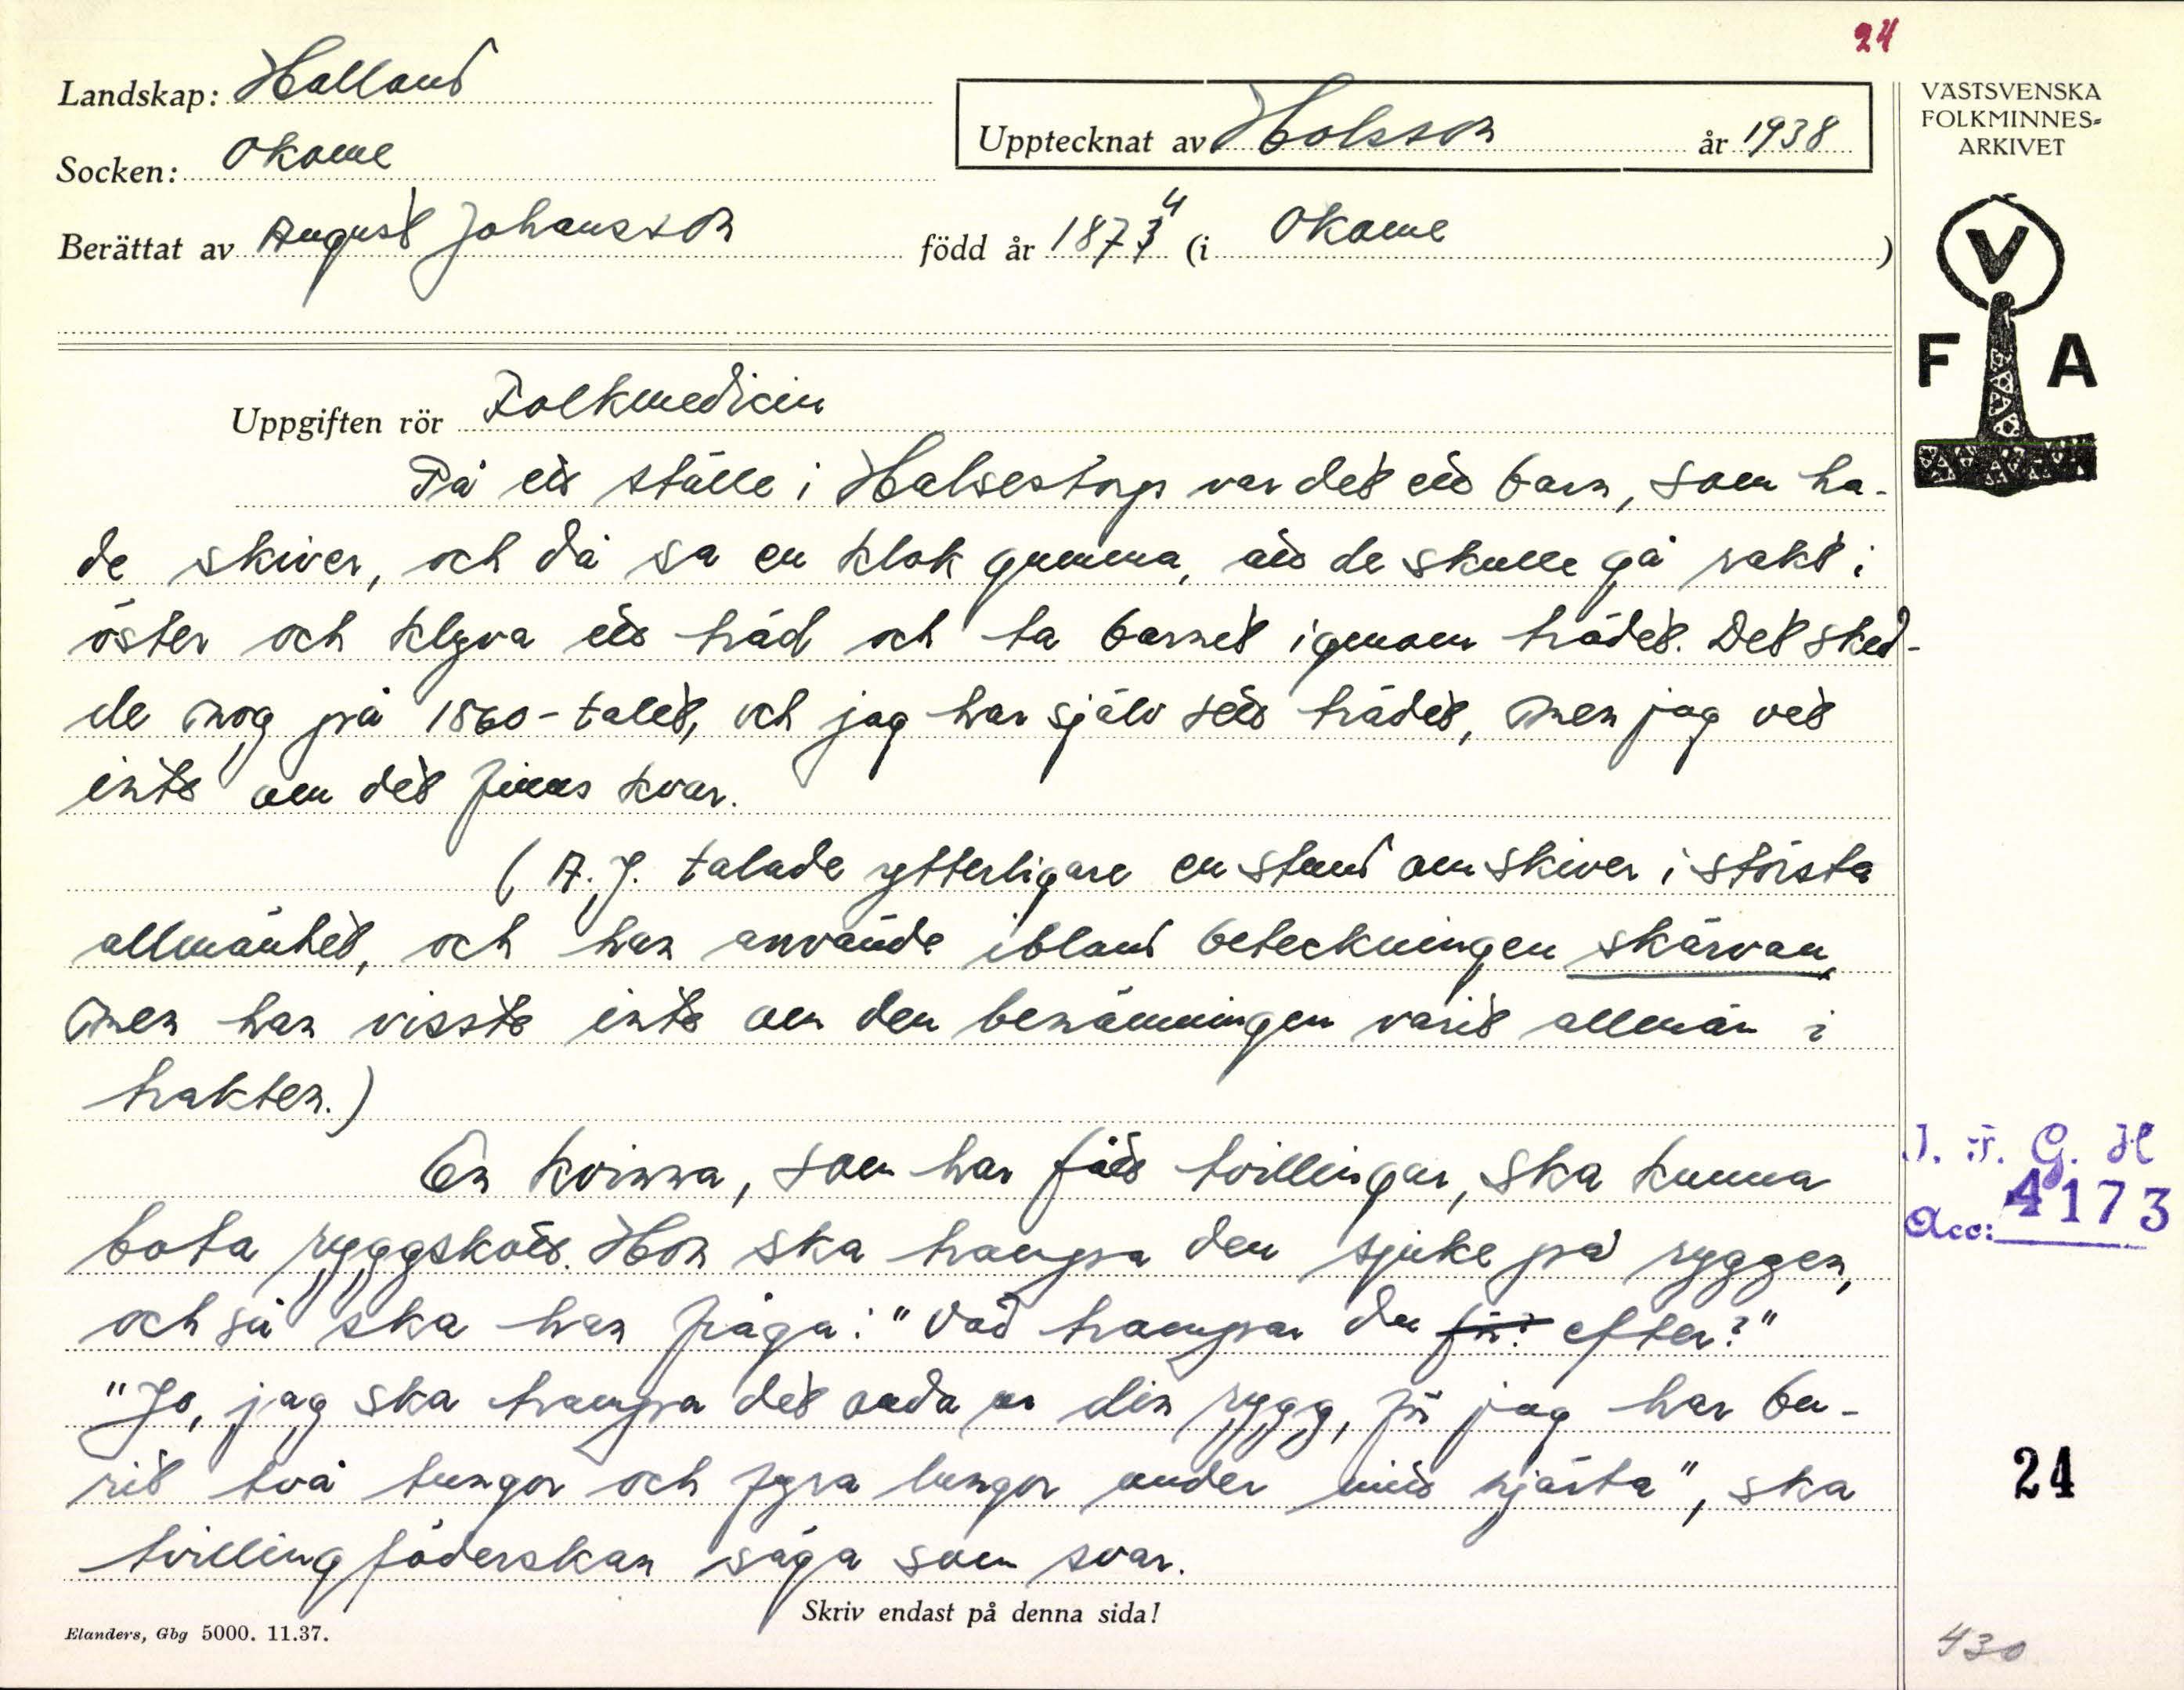 24
Landskap: Halland
Upptecknat av Holsson år 1938
VÄSTSVENSKA
FOLKMINNES=
ARKIVET
Socken: Okome
Berättat av August Johansson född år 1873 4 (i Okome)
V
F A
Uppgiften rör Folkmedicin
På ett ställe i Halsestorp var det ett barn, som ha-
de skiver, och då sa en klok gumma, att de skulle gå rakt i
öster och klyva ett träd och ta barnet igenom trädet. Det sked-
de nog på 1860-talet, och jag har själv sett trädet, men jag vet
inte om det finns kvar.
(A. J. talade ytterligare en stund om skiver i största
allmänhet, och han använde ibland beteckningen skärvan,
men han visste inte om den benämningen varit allmän i
trakten.)
En kvinna, som har fått tvillingar, ska kunna
bota ryggskott. Hon ska trampa den sjuke på ryggen,
och så ska han fråga: "Vad trampar du för? efter?"
"Jo, jag ska trampa det onda ur din rygg, för jag har bu-
rit två tungor och fyra lungor under mitt hjärta", ska
tvillingföderskan säga som svar.
I. F. G. H
Acc: 4173
24
Skriv endast på denna sida!
Elanders, Gbg 5000. 11.37.
430